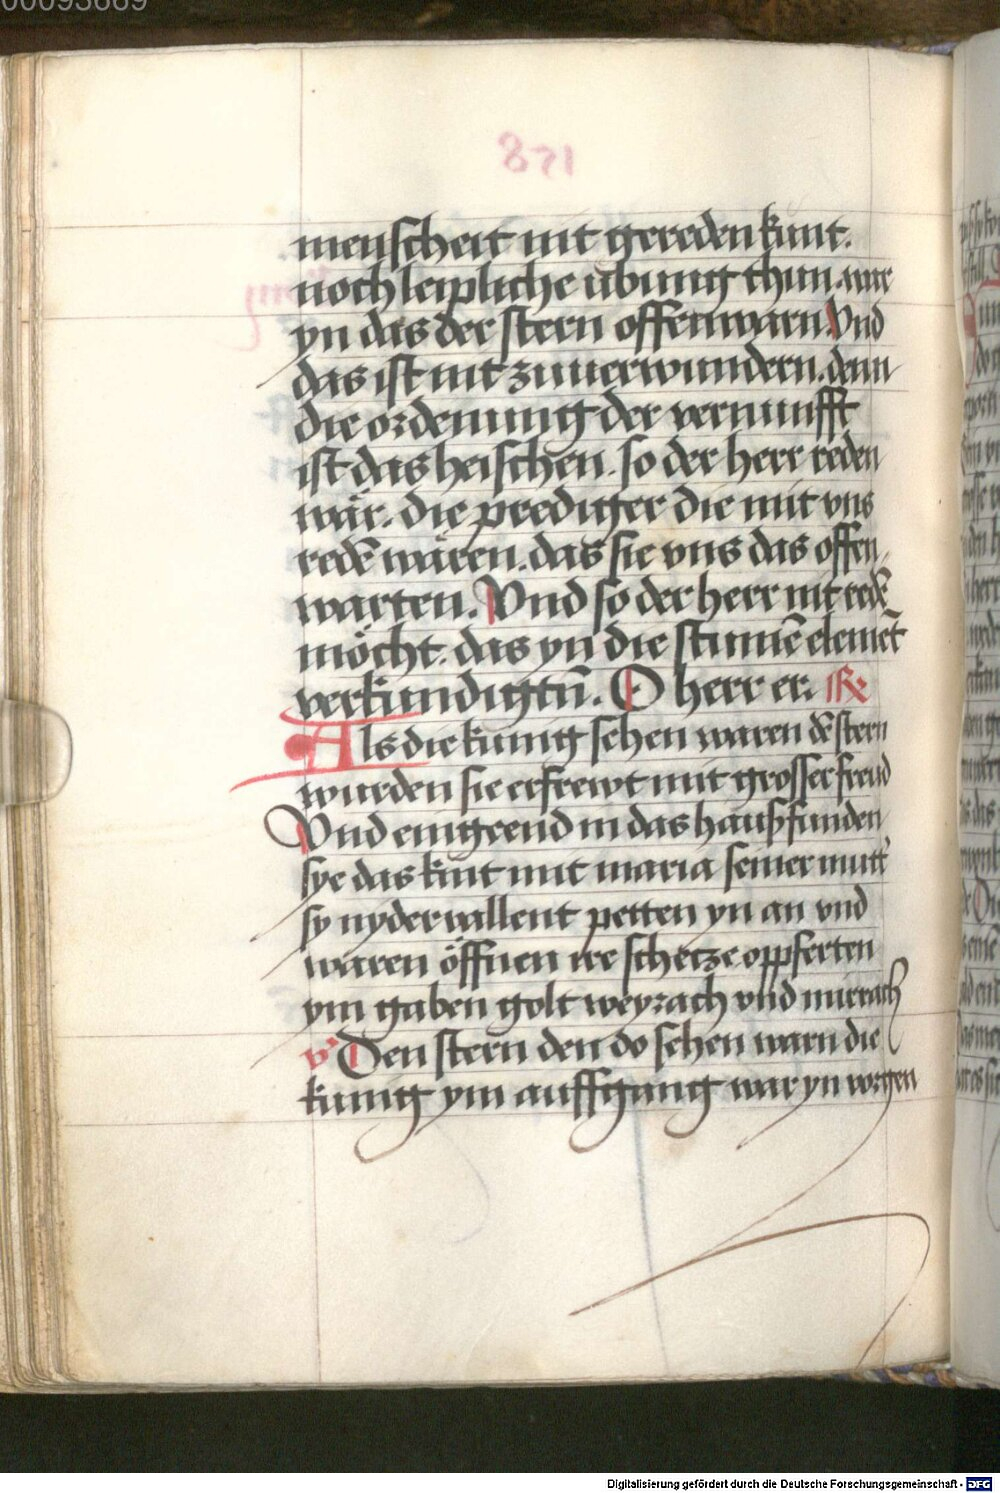 00093669
871
menscheit nit gereden kunt.
noch leipliche übung thun. nur
yn das der stern offenwarn. Vnd
das ist nit zuuerwundern. denn
die ordenung der vernunfft
ist das heischen. so der herr reden
wär. die prediger die mit vns
redē wären. das sie vns das offen
warten. Vnd so der herr nit redē
möcht. das yn die stummē elemēt
verkundigtn̄. O herr er. R
Als die kunig sehen waren dē stern
wurden sie erfrewt mit grosser freud
Vnd eingeend in das hauß funden
sye das kint mit maria seiner mutt'
sy nyder vallent petten yn an vnd
waren öffnen ire schetze oppferten
ym gaben golt weyrach vnd mirrach
v' Den stern den do sehen warn die
kunig ym auffgang war yn vorgen
Digitalisierung gefördert durch die Deutsche Forschungsgemeinschaft - DFG